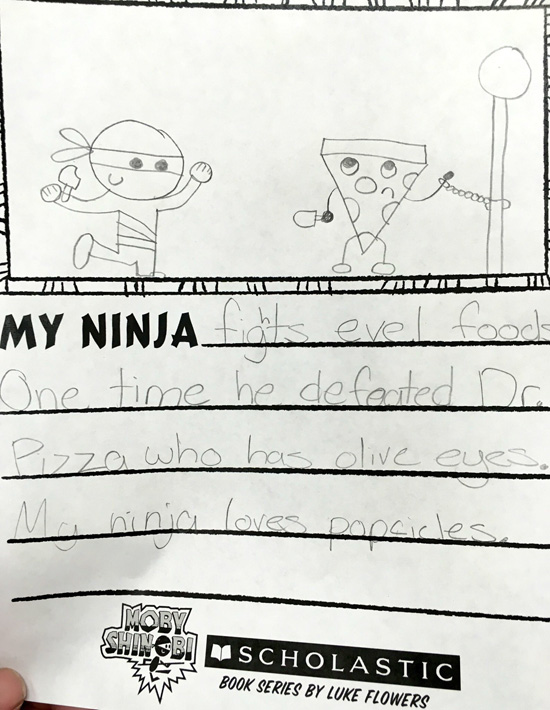 MY NINJA fights evel foods
One time he defeated Dr.
Pizza who has olive eyes.
My ninja loves popcicles.
MOBY
SHINOBI
SCHOLASTIC
BOOK SERIES BY LUKE FLOWERS